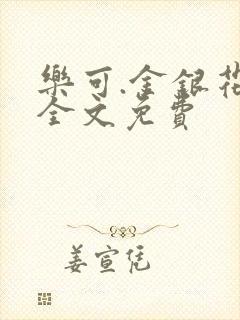 樂可.金銀花
全文免費
姜宣恁